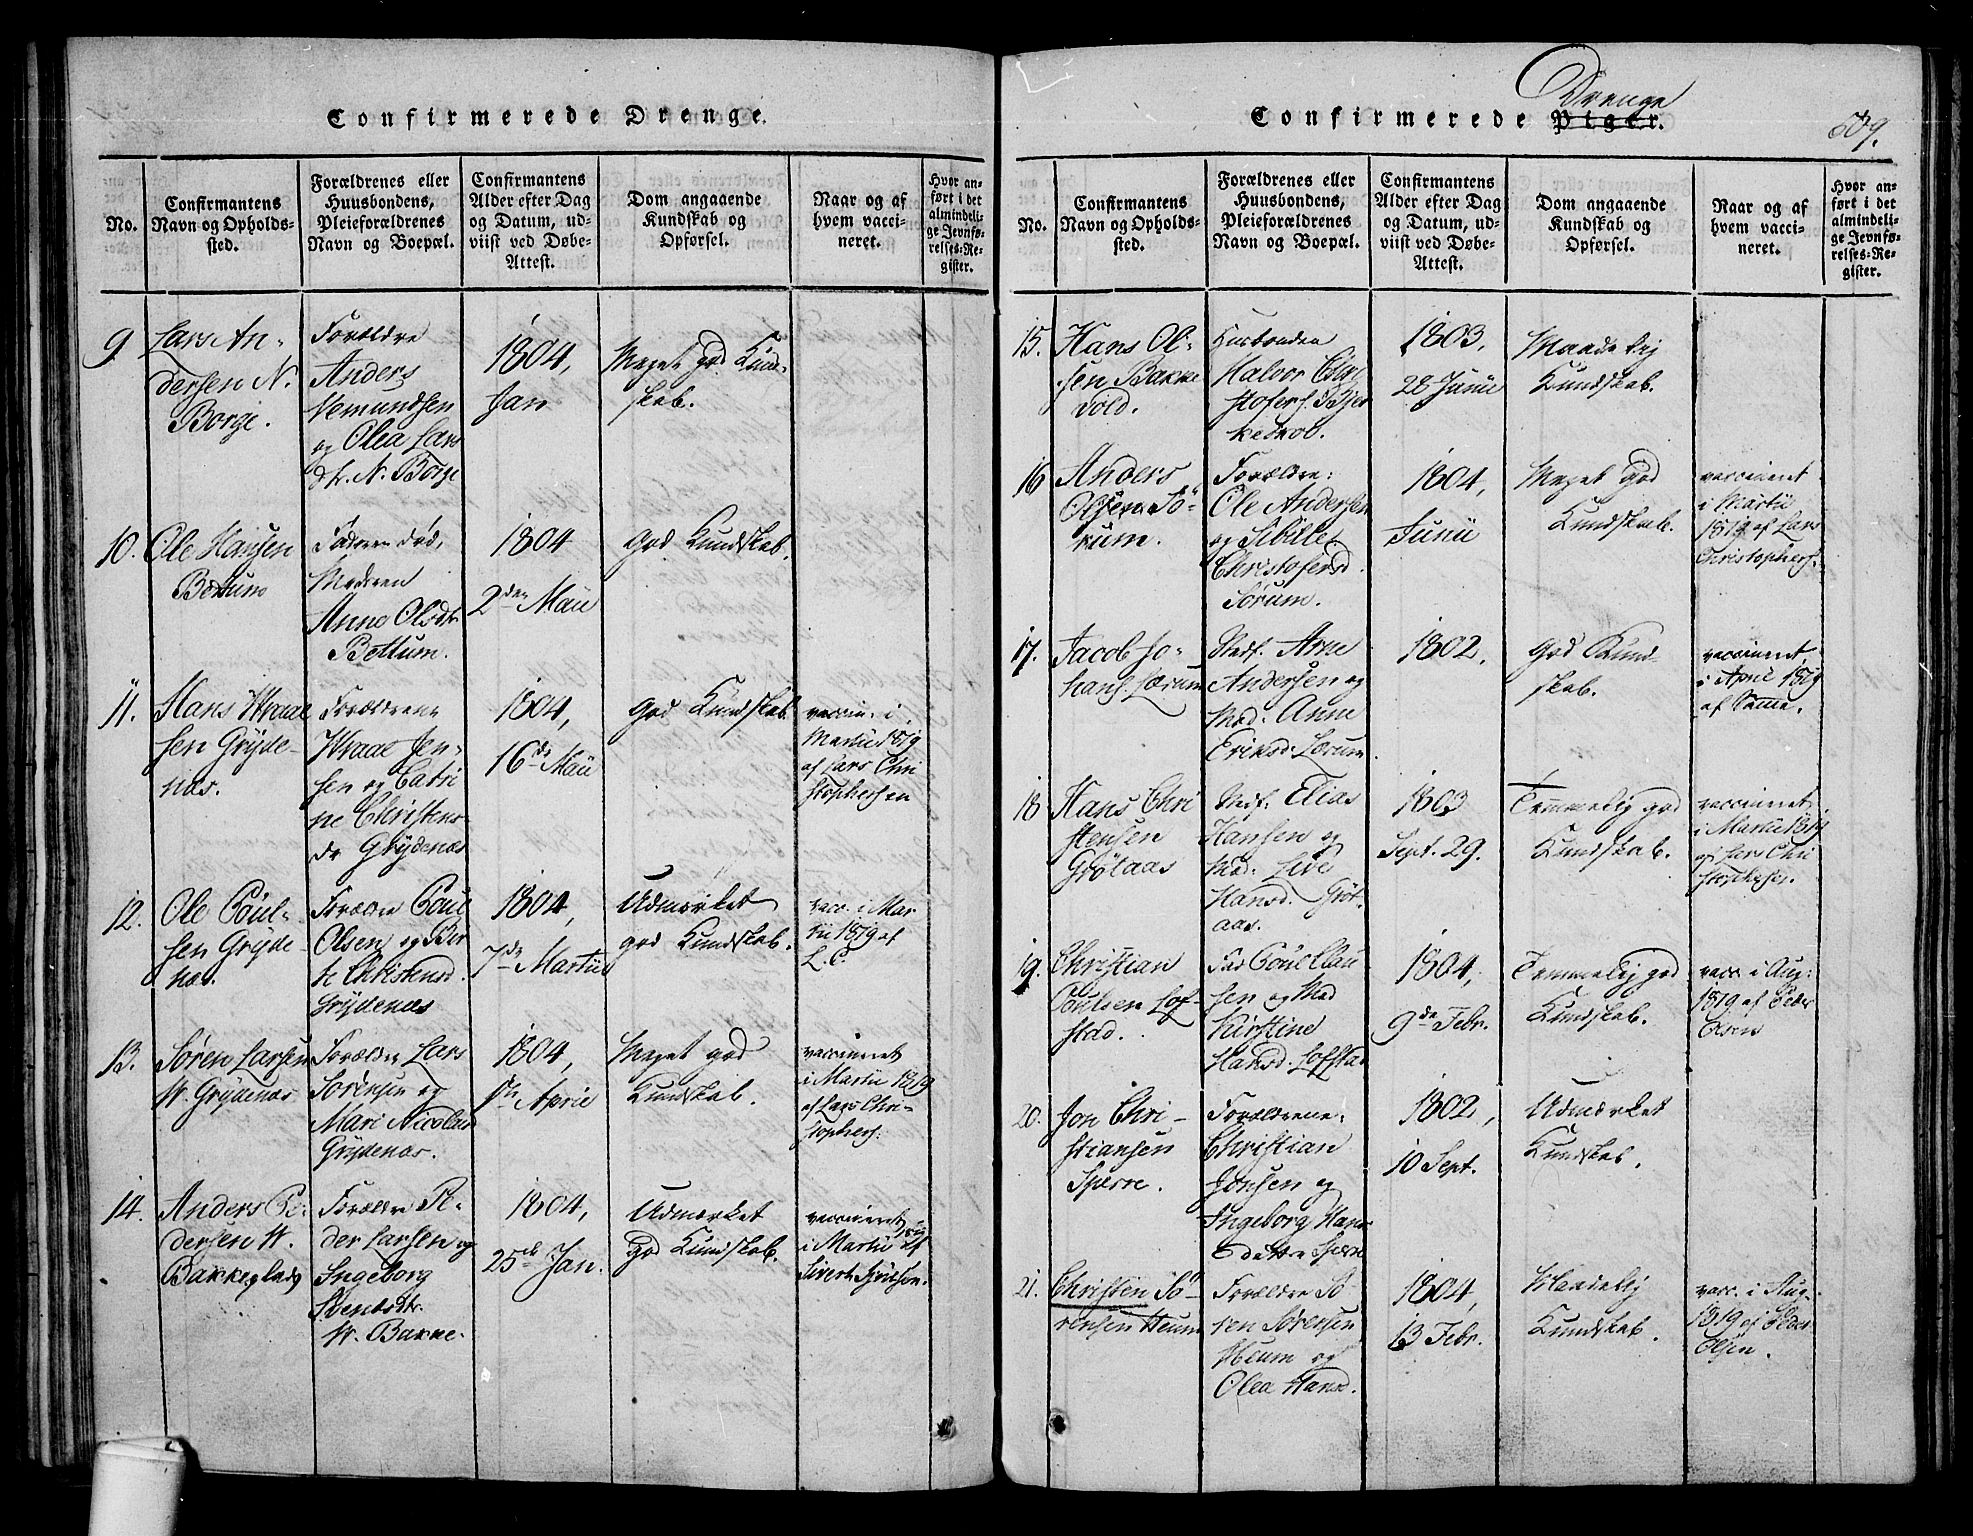 Confirmerede Drenge.
No.
Confirmantens
Navn og Opholds-
sted.
Forældrenes eller
Huusbondens,
Pleieforældrenes
Navn og Boepæl.
Confirmantens
Alder efter Dag
og Datum, ud-
viist ved Døbe-
Attest.
Dom angaaende
Kundskab og
Opførsel.
Naar og af
hvem vacci-
neret.
Hvor an-
ført i det
almindeli-
ge Jevnfø-
relses-Re-
gister.
9
Lars An-
dersen N.
Borge.
Forældre
Anders
Aemundsen
og Olea Lars
dtr. N. Borge
1804,
Jan
Meget god Kund-
skab.
10.
Ole Hansen
Bettum
Faderen død,
Moderen
Anne Olsdtr
Bettum.
1804
2den Maii
God Kundskab.
11.
Hans Wraal
sen Gryde-
næs.
Forældrene
Wraal Jen-
sen og Catri
ne Christens-
dr Grydenæs
1804,
16de Maii
God Kundskab
vaccin. i
Martii 1819
af Lars Chri
stophersen
12.
Ole Poul-
sen Gryde-
næs.
Forældre Poul
Olsen og Ber
te Christensd.
Grydenæs
1804,
7de Martii
Udmærket
god Kundskab.
vacc. i Mar
tii 1819 af
L. C.
13.
Søren Larsen
W. Grydenæs
Forældre Lars
Sørensen og
Mari Nicolai
Grydenæs.
1804,
Aprie
Meget god
Kundskab.
vaccineret
i Martii 1819
af Lars Chri-
stophers:
14.
Anders Pe-
dersen W.
Bakkeplads
Forældre Pe-
der Larsen og
Ingeborg
Svendsdtr.
W. Bakke.
1804,
25de Jan.
Udmærket
God Kundskab.
vaccineret
i Martii 1819 af
Sivert Sjøulsen.
Confirmerede Piger.
Drenge
509.
No.
Confirmantens
Navn og Opholds-
sted.
Forældrenes eller
Huusbondens,
Pleieforældrenes
Navn og Boepæl.
Confirmantens
Alder efter Dag
og Datum, ud-
viist ved Døbe-
Attest.
Dom angaaende
Kundskab og
Opførsel.
Naar og af
hvem vacci-
neret.
Hvor an-
ført i det
almindeli-
ge Jevnfø-
relses-Re-
gister.
15.
Hans Ol-
sen Bakke
vold.
Husbonden
Halvor Chri
stofers. Bjer
keskov.
1803,
28 Junii
Maadelig
Kundskab.
16
Anders
Olsen Sö-
rum.
Forældre:
Ole Andersen
og Sibille
Christofersd.
Sørum.
1804,
Junii
Meget god
Kundskab.
vaccineret
i Martii
1819 af Lars
Christophers.
17.
Jacob Jo-
hans. Lærum
Anne
Andersen og
Mod. Anne
Eriksd. Lærum
1802,
God Kund-
skab.
vaccineret
i April 1819
af Samme.
18
Hans Chri
stensen
Grøtaas
Elias
Hansen og
Mod. Live
Hansd. Grøt-
aas.
1803
Sept. 29.
Temmelig god
Kundskab.
vaccineret
i Martii 1819
af Lars Chri
stophers.
19.
Christian
Poulsen Lof-
stad.
Fad Poul Clau
sen og Mod
Kirstine
Hansd. Lofstad
1804,
9de Febr.
Temmelig god
Kundskab.
vacc. i Aug:
1819 af Peder
Olsen
20.
Jon Chri-
stiansen
Sperre.
Forældrene:
Christian
Jonsen og
Ingeborg Hans
datter Sperre
1802,
10 Sept.
Udmærket
Kundskab.
21.
Christen Sö-
rensen Heum
Forældre Sö
ren Sörensen
Heum og
Olea Hansd.
1804,
13 Febr.
Maadelig
Kundskab.
vacc. i Aug-
1819 af Peder
Olsen.